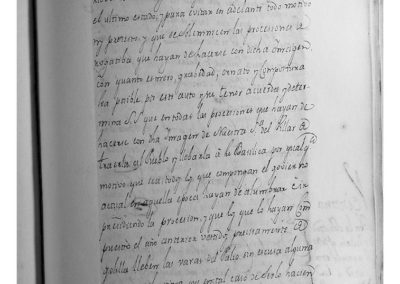 el ultimo estado, y para evitar en adelante todo motivo
ny pretexto, y que se solemnicen las procesiones
que hayan de hacerse con dicha Ymagen,
con quanto esmero, gravedad, ornato y compostura
sea posible por este auto y su tenor acuerda y deter-
mina S.S. que en todas las procesiones que hayan de
hacerse con dha Ymagen de Nuestra Sra del Pilar a
traerla al Pueblo y llebarla a la Basilica por qualqr
motivo que sea todos los que compongan el govierno
actual en aquella epoca hayan de alumbrar e ir
presidiendo la procesion, y que los que lo hayan com
puesto el año anterior vestidos precisamente a
golilla lleben las varas del Palio sin escusa alguna
en tal caso de serlo hacien